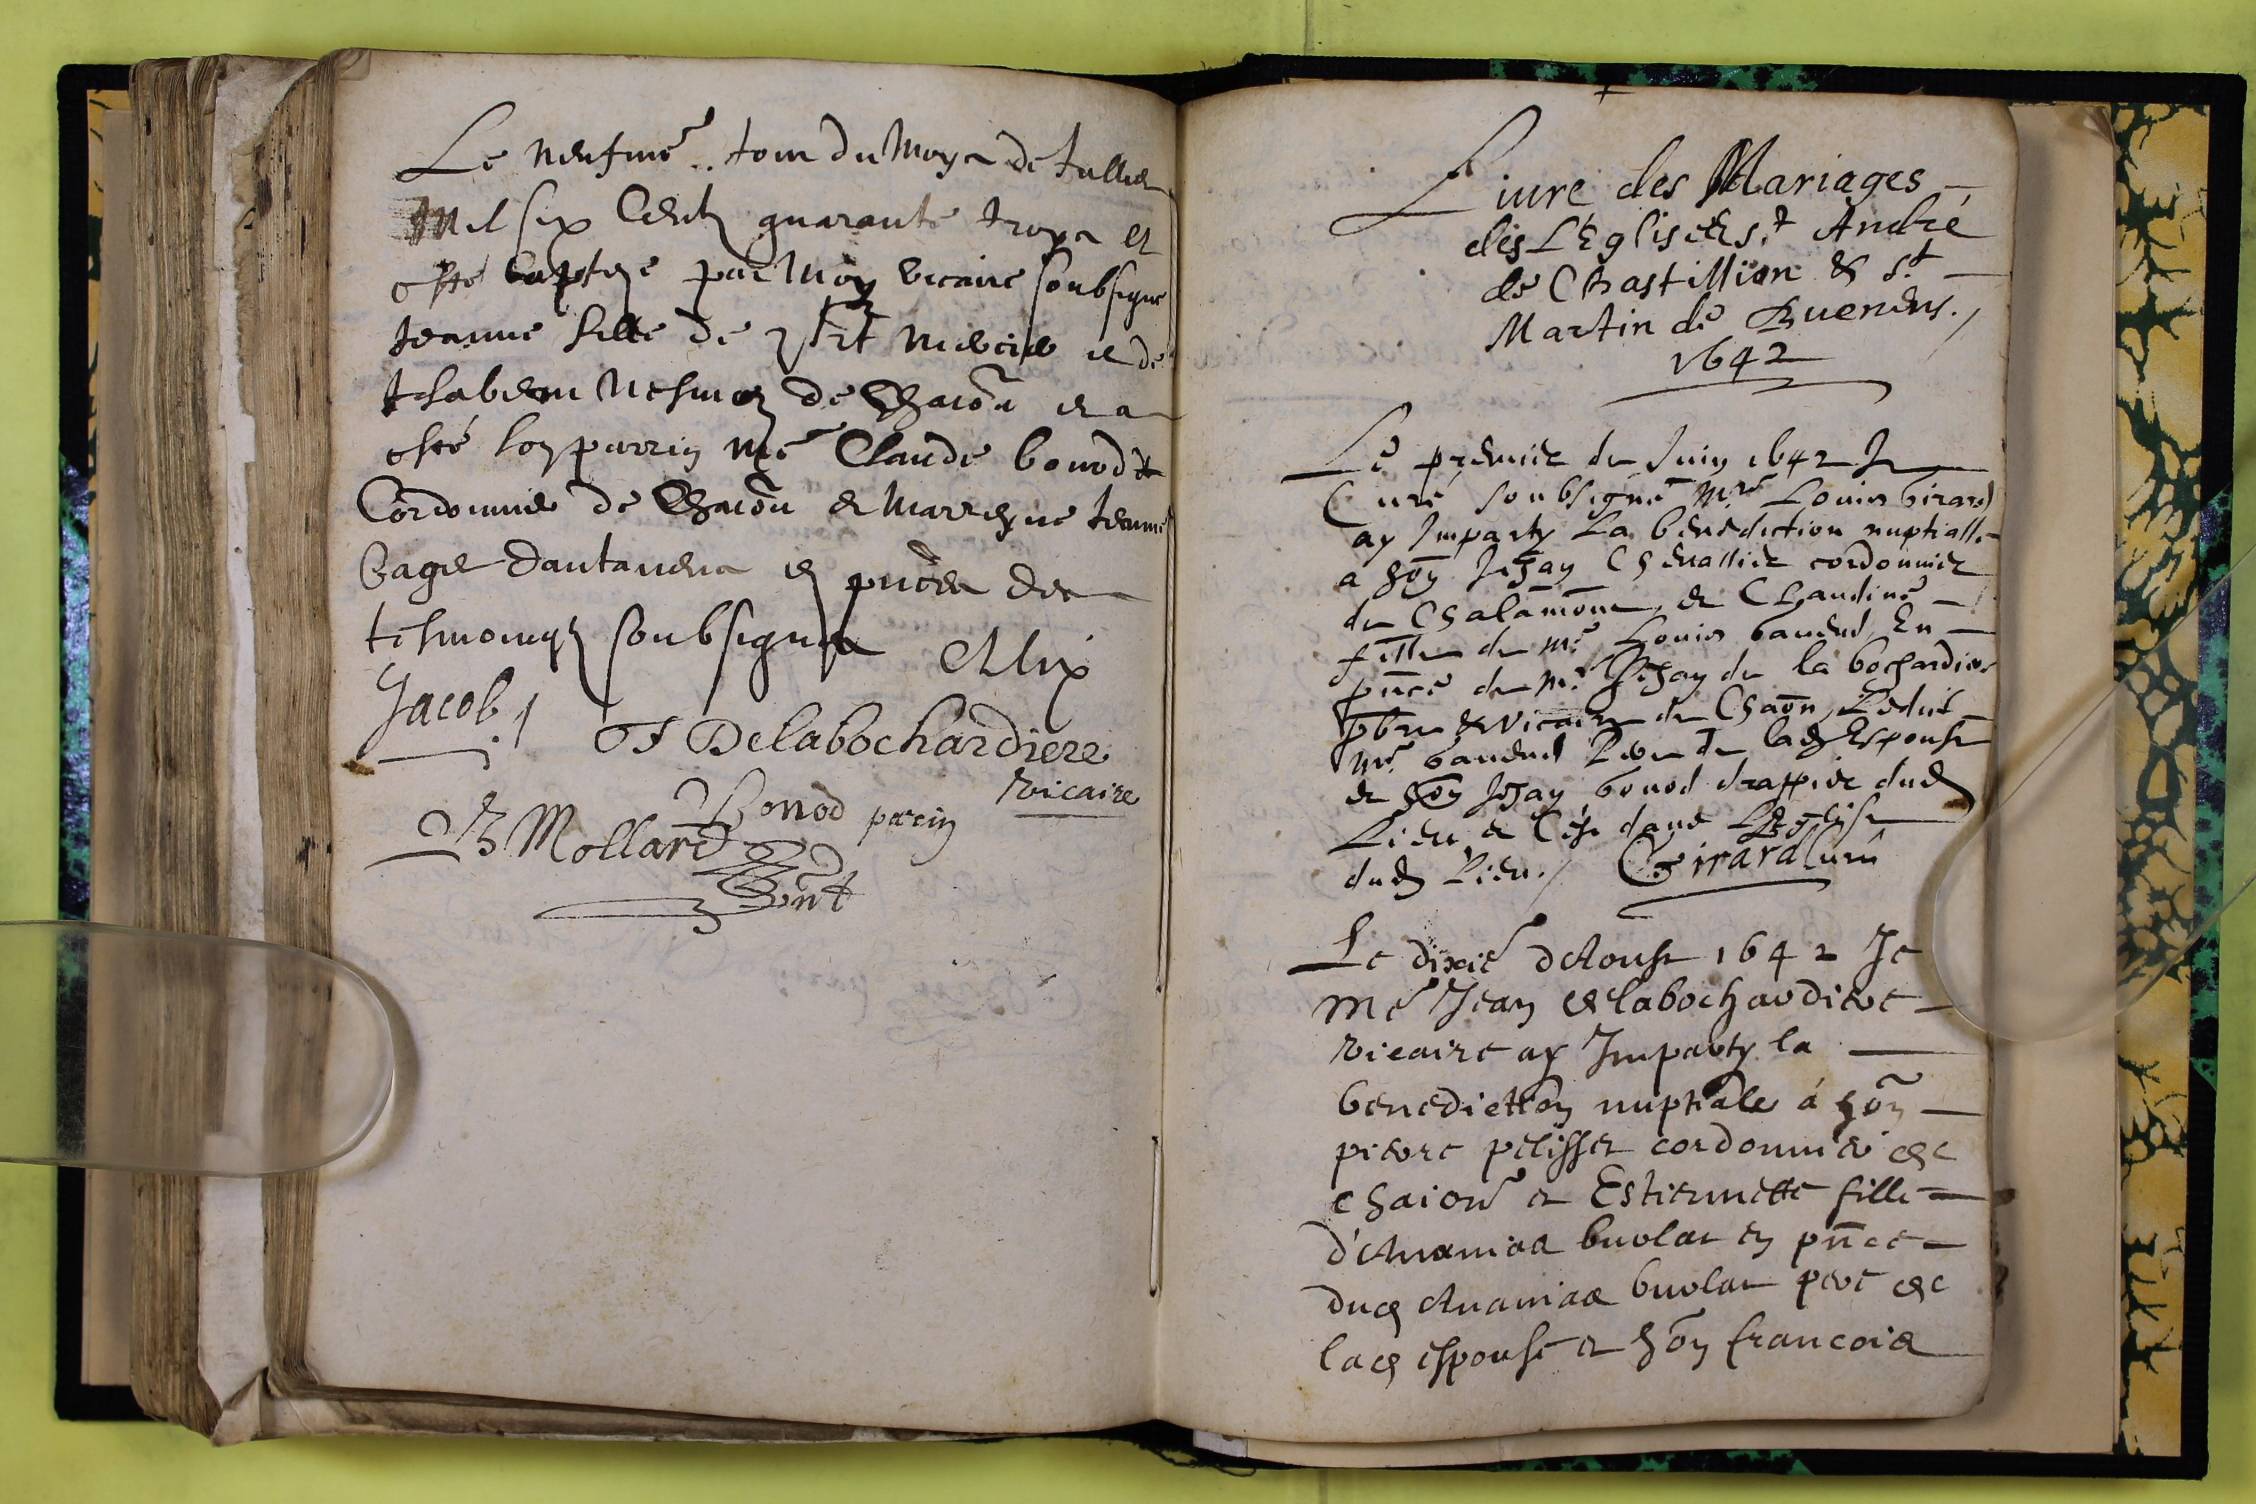 Le neufme jour du moys de Jullet
Mil six Centz quarante troys et
esté baptizé par moy vicaire soubsigne
Jeanne fille de mercier et de
Ysabeau de Chaōn et a
esté son parrin Me Claude bonod
Cordonnier de Chaōn et marreyne Jeanne
pntce des
tesmoingz soubsignes Alix
Jacob
Delabochardiere
vicaire
Bonod parrin
B Mollard
Livre des Mariages
des L'Eglises St André
de Chastillion & St
Martin de Buenens.
1642
Le premier de Juin 1642 Je
Curé soubsigné Mre Louis Girard
ay Imparty La benediction nuptialle
a hōn Jehan Chevallier cordonnier
de Chalamōnt et Claudine
fille de Me Louis baudud En
pn̄ce de Mre Jehan de la bochardiere
pbre & vicaire de Chaōn, Ledict
Me baudud Pere de lad Espouse
et hōn Jehan bonod drappier dud
Lieu et Ce dans L'Eglise
dud Lieu. Girard Curé
Le dixie d'Aoust 1642 Je
Me Jean delabochardiere
vicaire ay Imparty la
benediction nuptiale á hōn
pierre pelisset cordonnier de
chaion et Estiennette fille
d'Ananias buolat en pn̄ce
dud Ananias buolat pere de
lad espouse et hōn francois